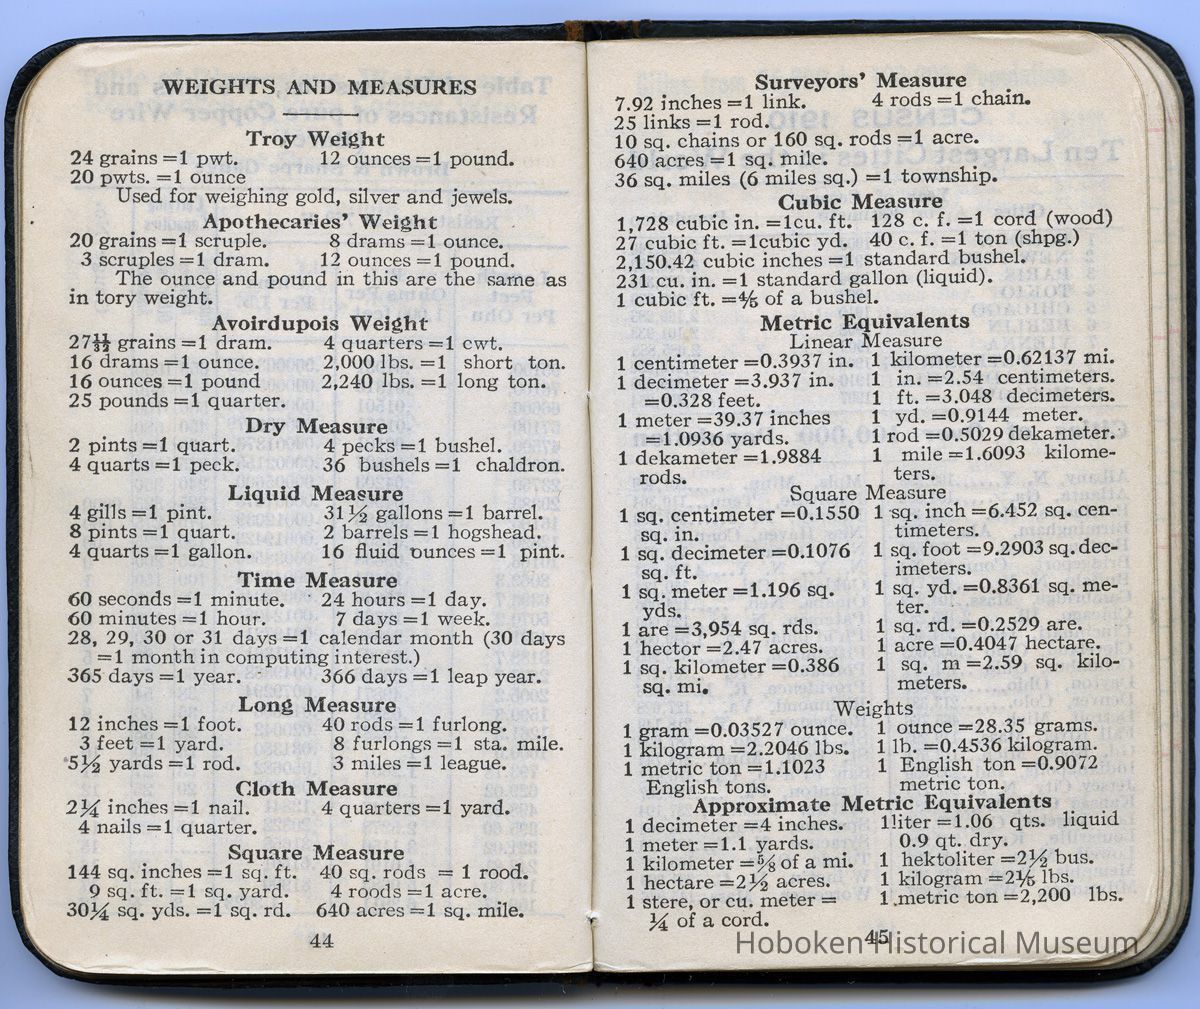 WEIGHTS AND MEASURES
Troy Weight
24 grains =1 pwt. 12 ounces =1 pound.
20 pwts. =1 ounce
Used for weighing gold, silver and jewels.
Apothecaries' Weight
20 grains =1 scruple. 8 drams =1 ounce.
3 scruples =1 dram. 12 ounces =1 pound.
The ounce and pound in this are the same as
in tory weight.
Avoirdupois Weight
27 11/32 grains =1 dram. 4 quarters =1 cwt.
16 drams =1 ounce. 2,000 lbs. =1 short ton.
16 ounces =1 pound 2,240 lbs. =1 long ton.
25 pounds =1 quarter.
Dry Measure
2 pints =1 quart. 4 pecks =1 bushel.
4 quarts =1 peck. 36 bushels =1 chaldron.
Liquid Measure
4 gills =1 pint. 31½ gallons =1 barrel.
8 pints =1 quart. 2 barrels =1 hogshead.
4 quarts =1 gallon. 16 fluid ounces =1 pint.
Time Measure
60 seconds =1 minute. 24 hours =1 day.
60 minutes =1 hour. 7 days =1 week.
28, 29, 30 or 31 days =1 calendar month (30 days
=1 month in computing interest.)
365 days =1 year. 366 days =1 leap year.
Long Measure
12 inches =1 foot. 40 rods =1 furlong.
3 feet =1 yard. 8 furlongs =1 sta. mile.
5½ yards =1 rod. 3 miles =1 league.
Cloth Measure
2¼ inches =1 nail. 4 quarters =1 yard.
4 nails =1 quarter.
Square Measure
144 sq. inches =1 sq. ft. 40 sq. rods = 1 rood.
9 sq. ft. =1 sq. yard. 4 roods =1 acre.
30¼ sq. yds. =1 sq. rd. 640 acres =1 sq. mile.
44
Surveyors' Measure
7.92 inches =1 link. 4 rods =1 chain.
25 links =1 rod.
10 sq. chains or 160 sq. rods =1 acre.
640 acres =1 sq. mile.
36 sq. miles (6 miles sq.) =1 township.
Cubic Measure
1,728 cubic in. =1cu. ft. 128 c. f. =1 cord (wood)
27 cubic ft. =1cubic yd. 40 c. f. =1 ton (shpg.)
2,150.42 cubic inches =1 standard bushel.
231 cu. in. =1 standard gallon (liquid).
1 cubic ft. =⅘ of a bushel.
Metric Equivalents
Linear Measure
1 centimeter =0.3937 in. 1 kilometer =0.62137 mi.
1 decimeter =3.937 in. 1 in. =2.54 centimeters.
=0.328 feet. 1 ft. =3.048 decimeters.
1 meter =39.37 inches 1 yd. =0.9144 meter.
=1.0936 yards. 1 rod =0.5029 dekameter.
1 dekameter =1.9884 1 mile =1.6093 kilome-
rods. ters.
Square Measure
1 sq. centimeter =0.1550 1 sq. inch =6.452 sq. cen-
sq. in. timeters.
1 sq. decimeter =0.1076 1 sq. foot =9.2903 sq. dec-
sq. ft. imeters.
1 sq. meter =1.196 sq. 1 sq. yd. =0.8361 sq. me-
yds. ter.
1 are =3,954 sq. rds. 1 sq. rd. =0.2529 are.
1 hector =2.47 acres. 1 acre =0.4047 hectare.
1 sq. kilometer =0.386 1 sq. m =2.59 sq. kilo-
sq. mi. meters.
Weights
1 gram =0.03527 ounce. 1 ounce =28.35 grams.
1 kilogram =2.2046 lbs. 1 lb. =0.4536 kilogram.
1 metric ton =1.1023 1 English ton =0.9072
English tons. metric ton.
Approximate Metric Equivalents
1 decimeter =4 inches. 1liter =1.06 qts. liquid
1 meter =1.1 yards. 0.9 qt. dry.
1 kilometer =⅝ of a mi. 1 hektoliter =2½ bus.
1 hectare =2½ acres. 1 kilogram =2⅕ lbs.
1 stere, or cu. meter = 1 metric ton =2,200 lbs.
¼ of a cord.
45
Hoboken Historical Museum